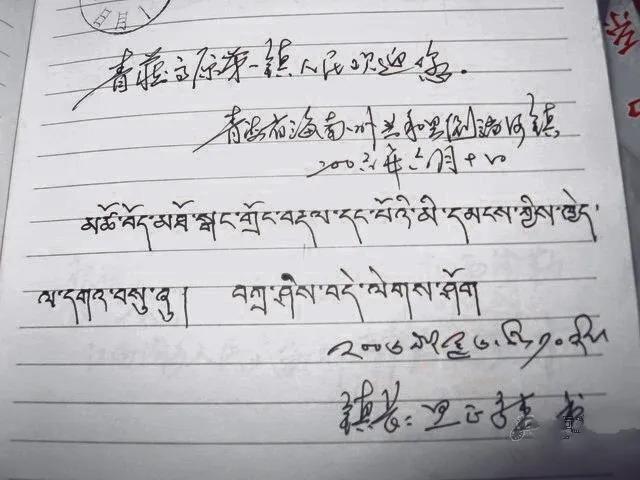 青藏高原第一镇人民欢迎您.
青海省海南州共和县倒淌河镇
年六月十日
མཚོ་བོད་མཐོ་སྒང་གྲོང་བརྡལ་དང་པོའི་མི་དམངས་ཀྱིས་ཁྱེད་
ལ་དགའ་བསུ་ཞུ། བཀྲ་ཤིས་བདེ་ལེགས་ཤོག
镇长: